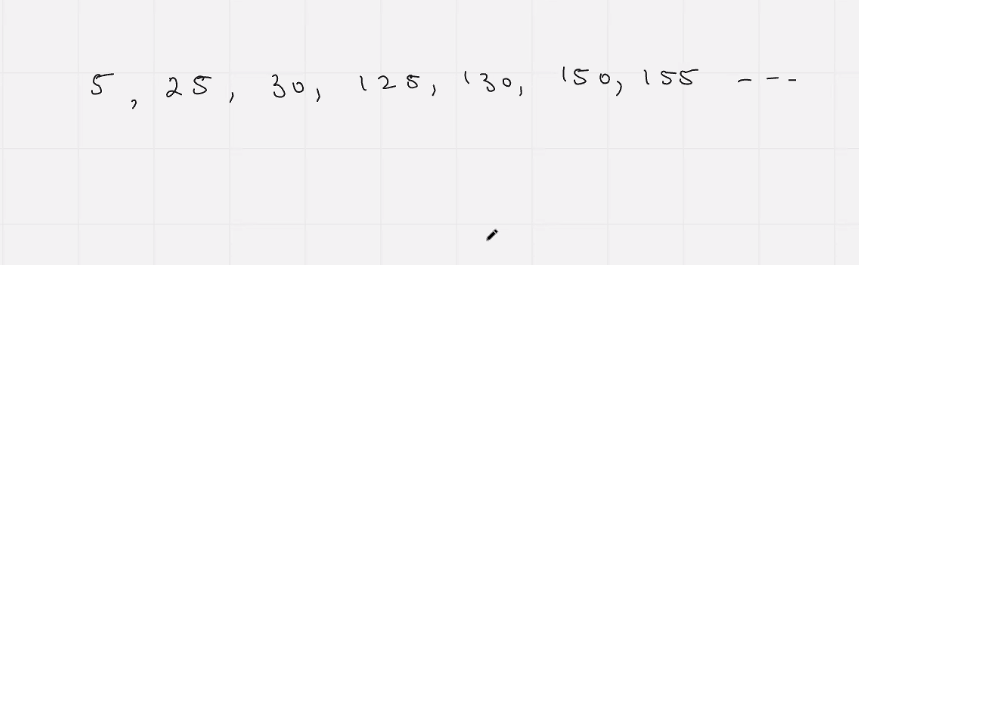 5, 25, 30, 125, 130, 150, 155 ---